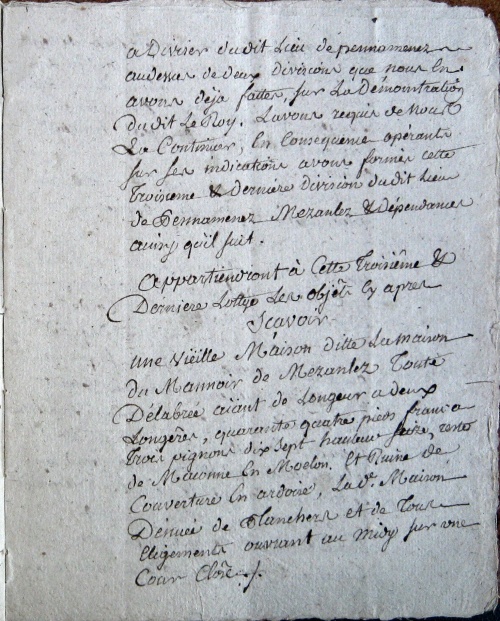 a Diviser dudit Lieu de pennamenez
audessus de deux divisions que nous En
avons deja faittes, sur La Démonstration
Dudit Le Roy. L'avons requis de nous
Le Continuer, En Consequence opérants
sur ses indications avons formés cette
Troisieme & Derniere division dudit Lieu
de Pennamenez Mezanlez & dépendances
ainsy qu'il suit.
Appartiendront à Cette Troisiême &
Derniere Lottye Les objêts Cy apres
Scavoir
une Vieille Maison ditte La maison
du Mannoir de Mezanlez Toute
Délabrée aïant de Longeur a deux
Longêres, quarante quatre pieds franc a
Trois pignons dix sept hauteur seize,
de Maconne En Moelon. et Ruine de
Couverture En ardoise, La de. Maison
Dénuée de Planchers et de Tous
Eligements ouvrant au midy sur une
Cour Close ./.